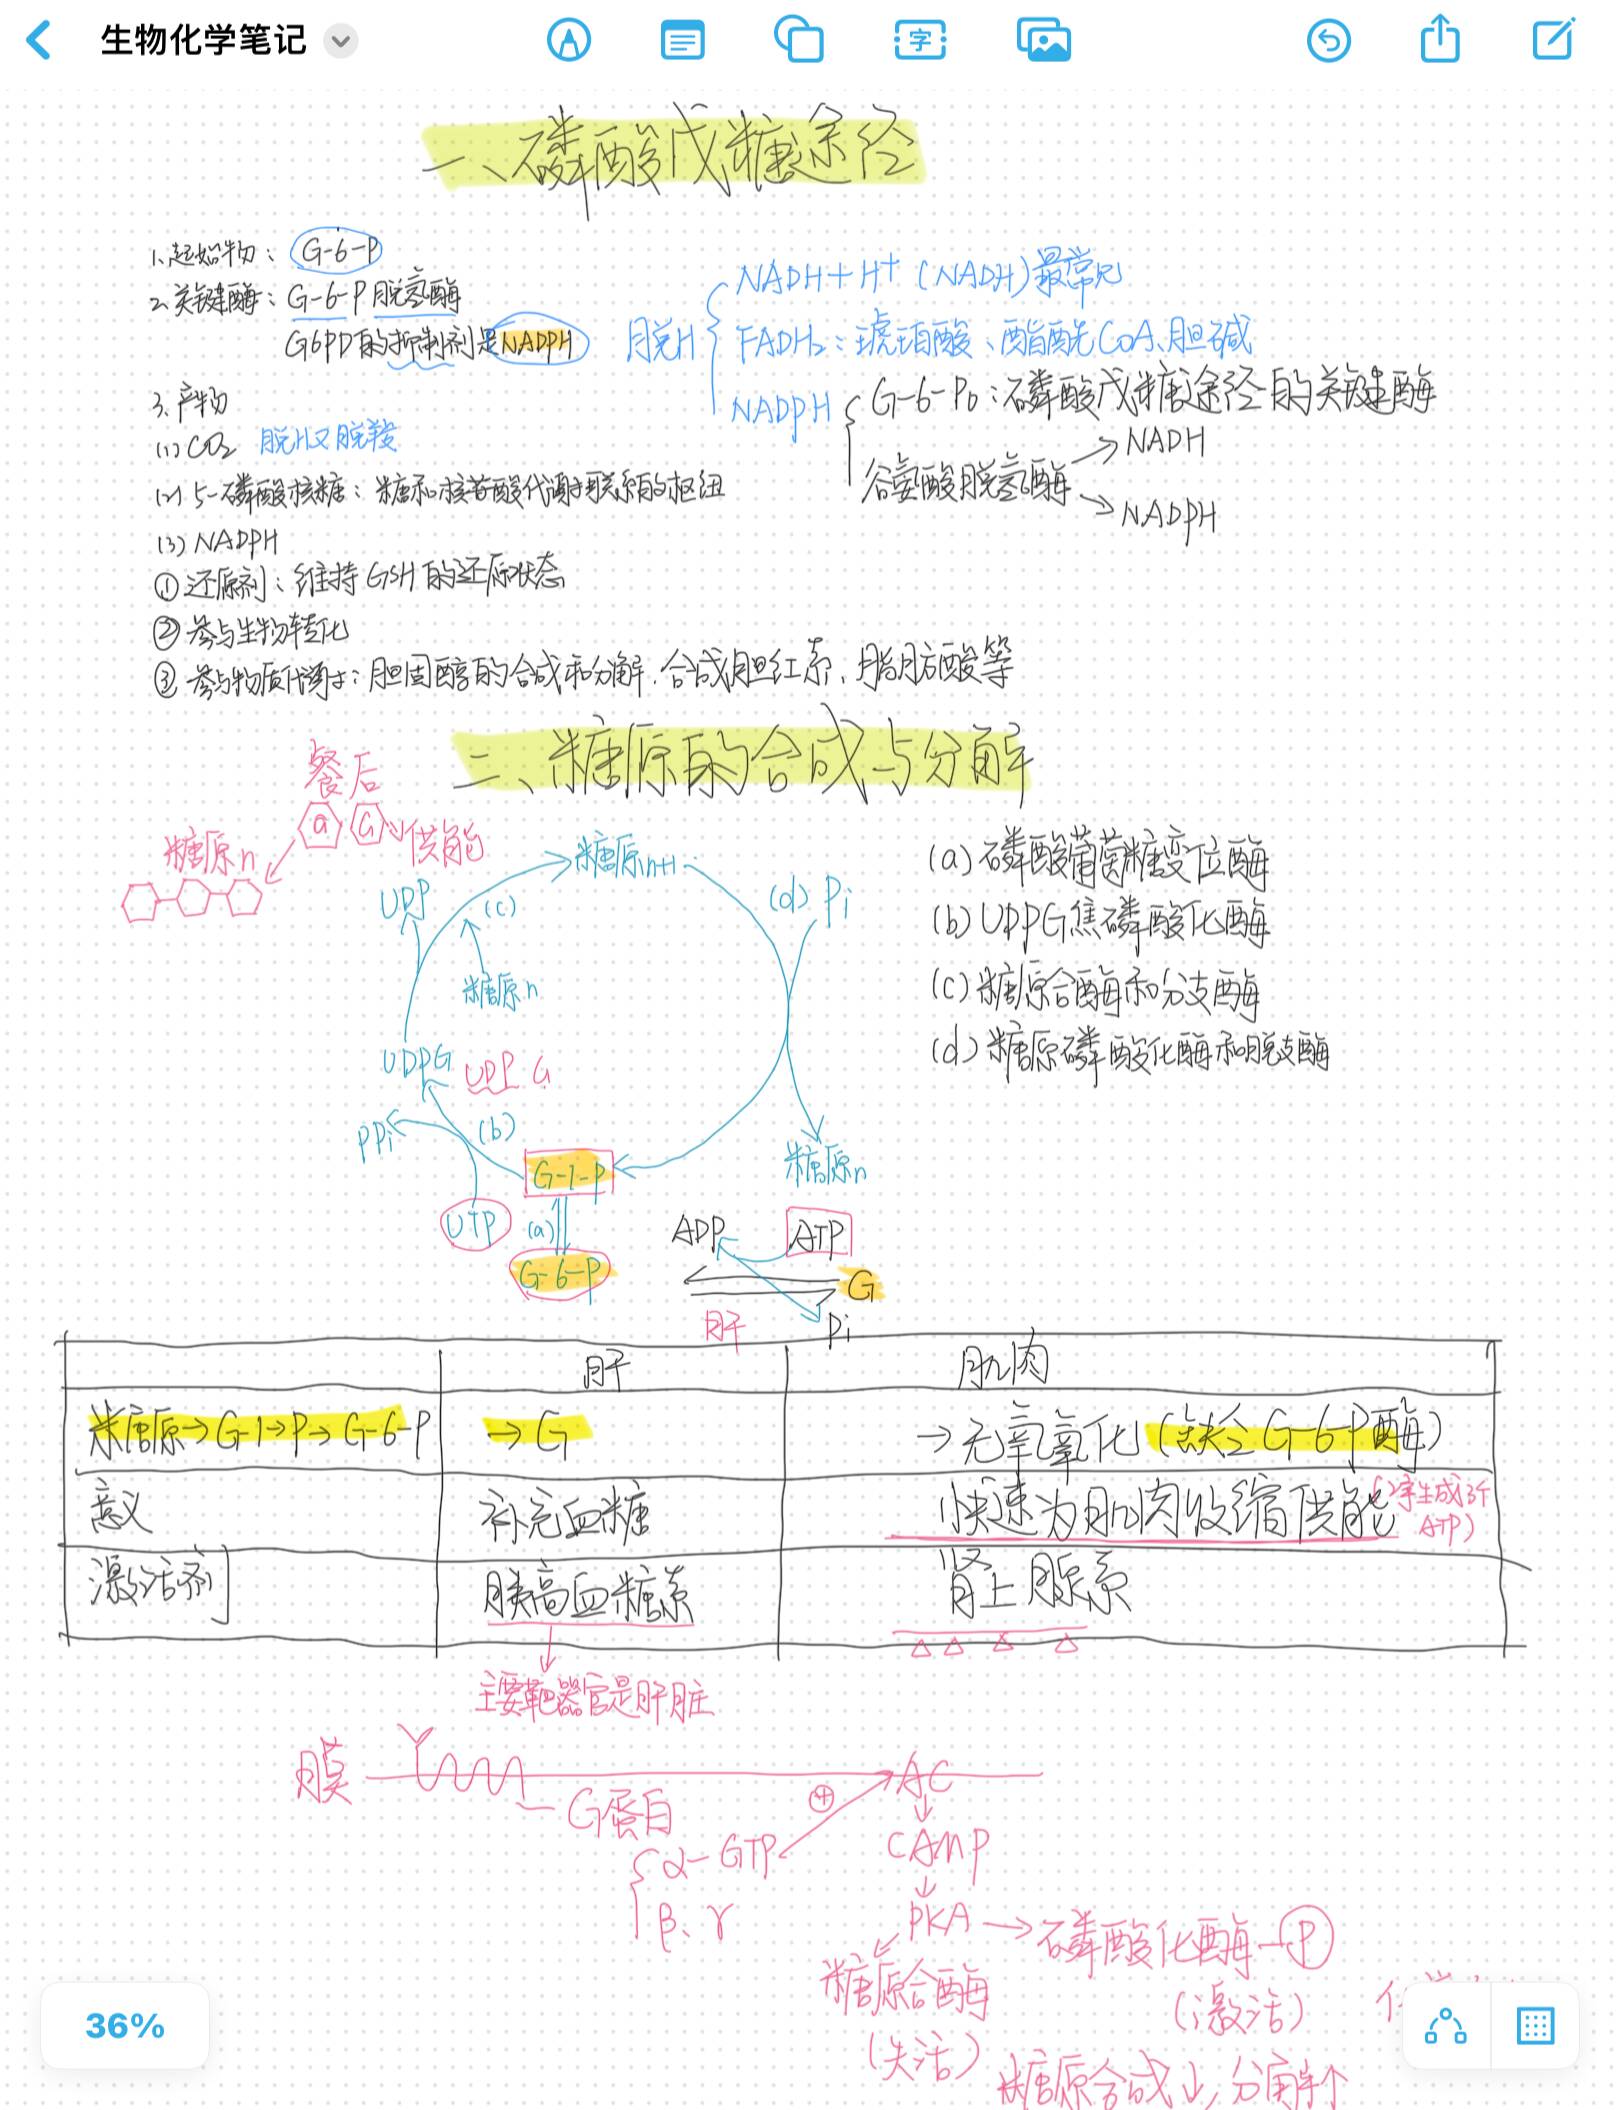 生物化学笔记
字
一、磷酸戊糖途径
1.起始物：G-6-P
2.关键酶：G-6-P脱氢酶
G6PD的抑制剂是NADPH
3.产物
(1)CO2 脱H又脱羧
(2)5-磷酸核糖：糖和核苷酸代谢联系的枢纽
(3)NADPH
①还原剂：维持GSH的还原状态
②参与生物转化
③参与物质代谢：胆固醇的合成和分解.合成胆红素、脂肪酸等
脱H
NADH+H+（NADH）最常见
FADH2：琥珀酸、脂酰CoA、胆碱
NADPH
G-6-PD：磷酸戊糖途径的关键酶
谷氨酸脱氢酶
NADH
NADPH
二、糖原的合成与分解
餐后
G G 供能
糖原n
糖原n+1
UDP
(c)
(d) Pi
糖原n
UDPG UDP G
PPi
(b)
G-1-P
糖原n
UTP
(a)
G-6-P
ADP ATP
G
肝
Pi
(a)磷酸葡萄糖变位酶
(b)UDPG焦磷酸化酶
(c)糖原合酶和分支酶
(d)糖原磷酸化酶和脱支酶
肝 肌肉
糖原→G-1-P→G-6-P →G →无氧氧化（缺乏G-6-P酶）
意义 补充血糖 快速为肌肉收缩供能（净生成3个ATP）
激活剂 胰高血糖素 肾上腺素
主要靶器官是肝脏
膜
AC
G蛋白
α-GTP
β、γ
cAMP
PKA→磷酸化酶-P
糖原合酶
（激活）
（失活）
糖原合成↓，分解↑
36%